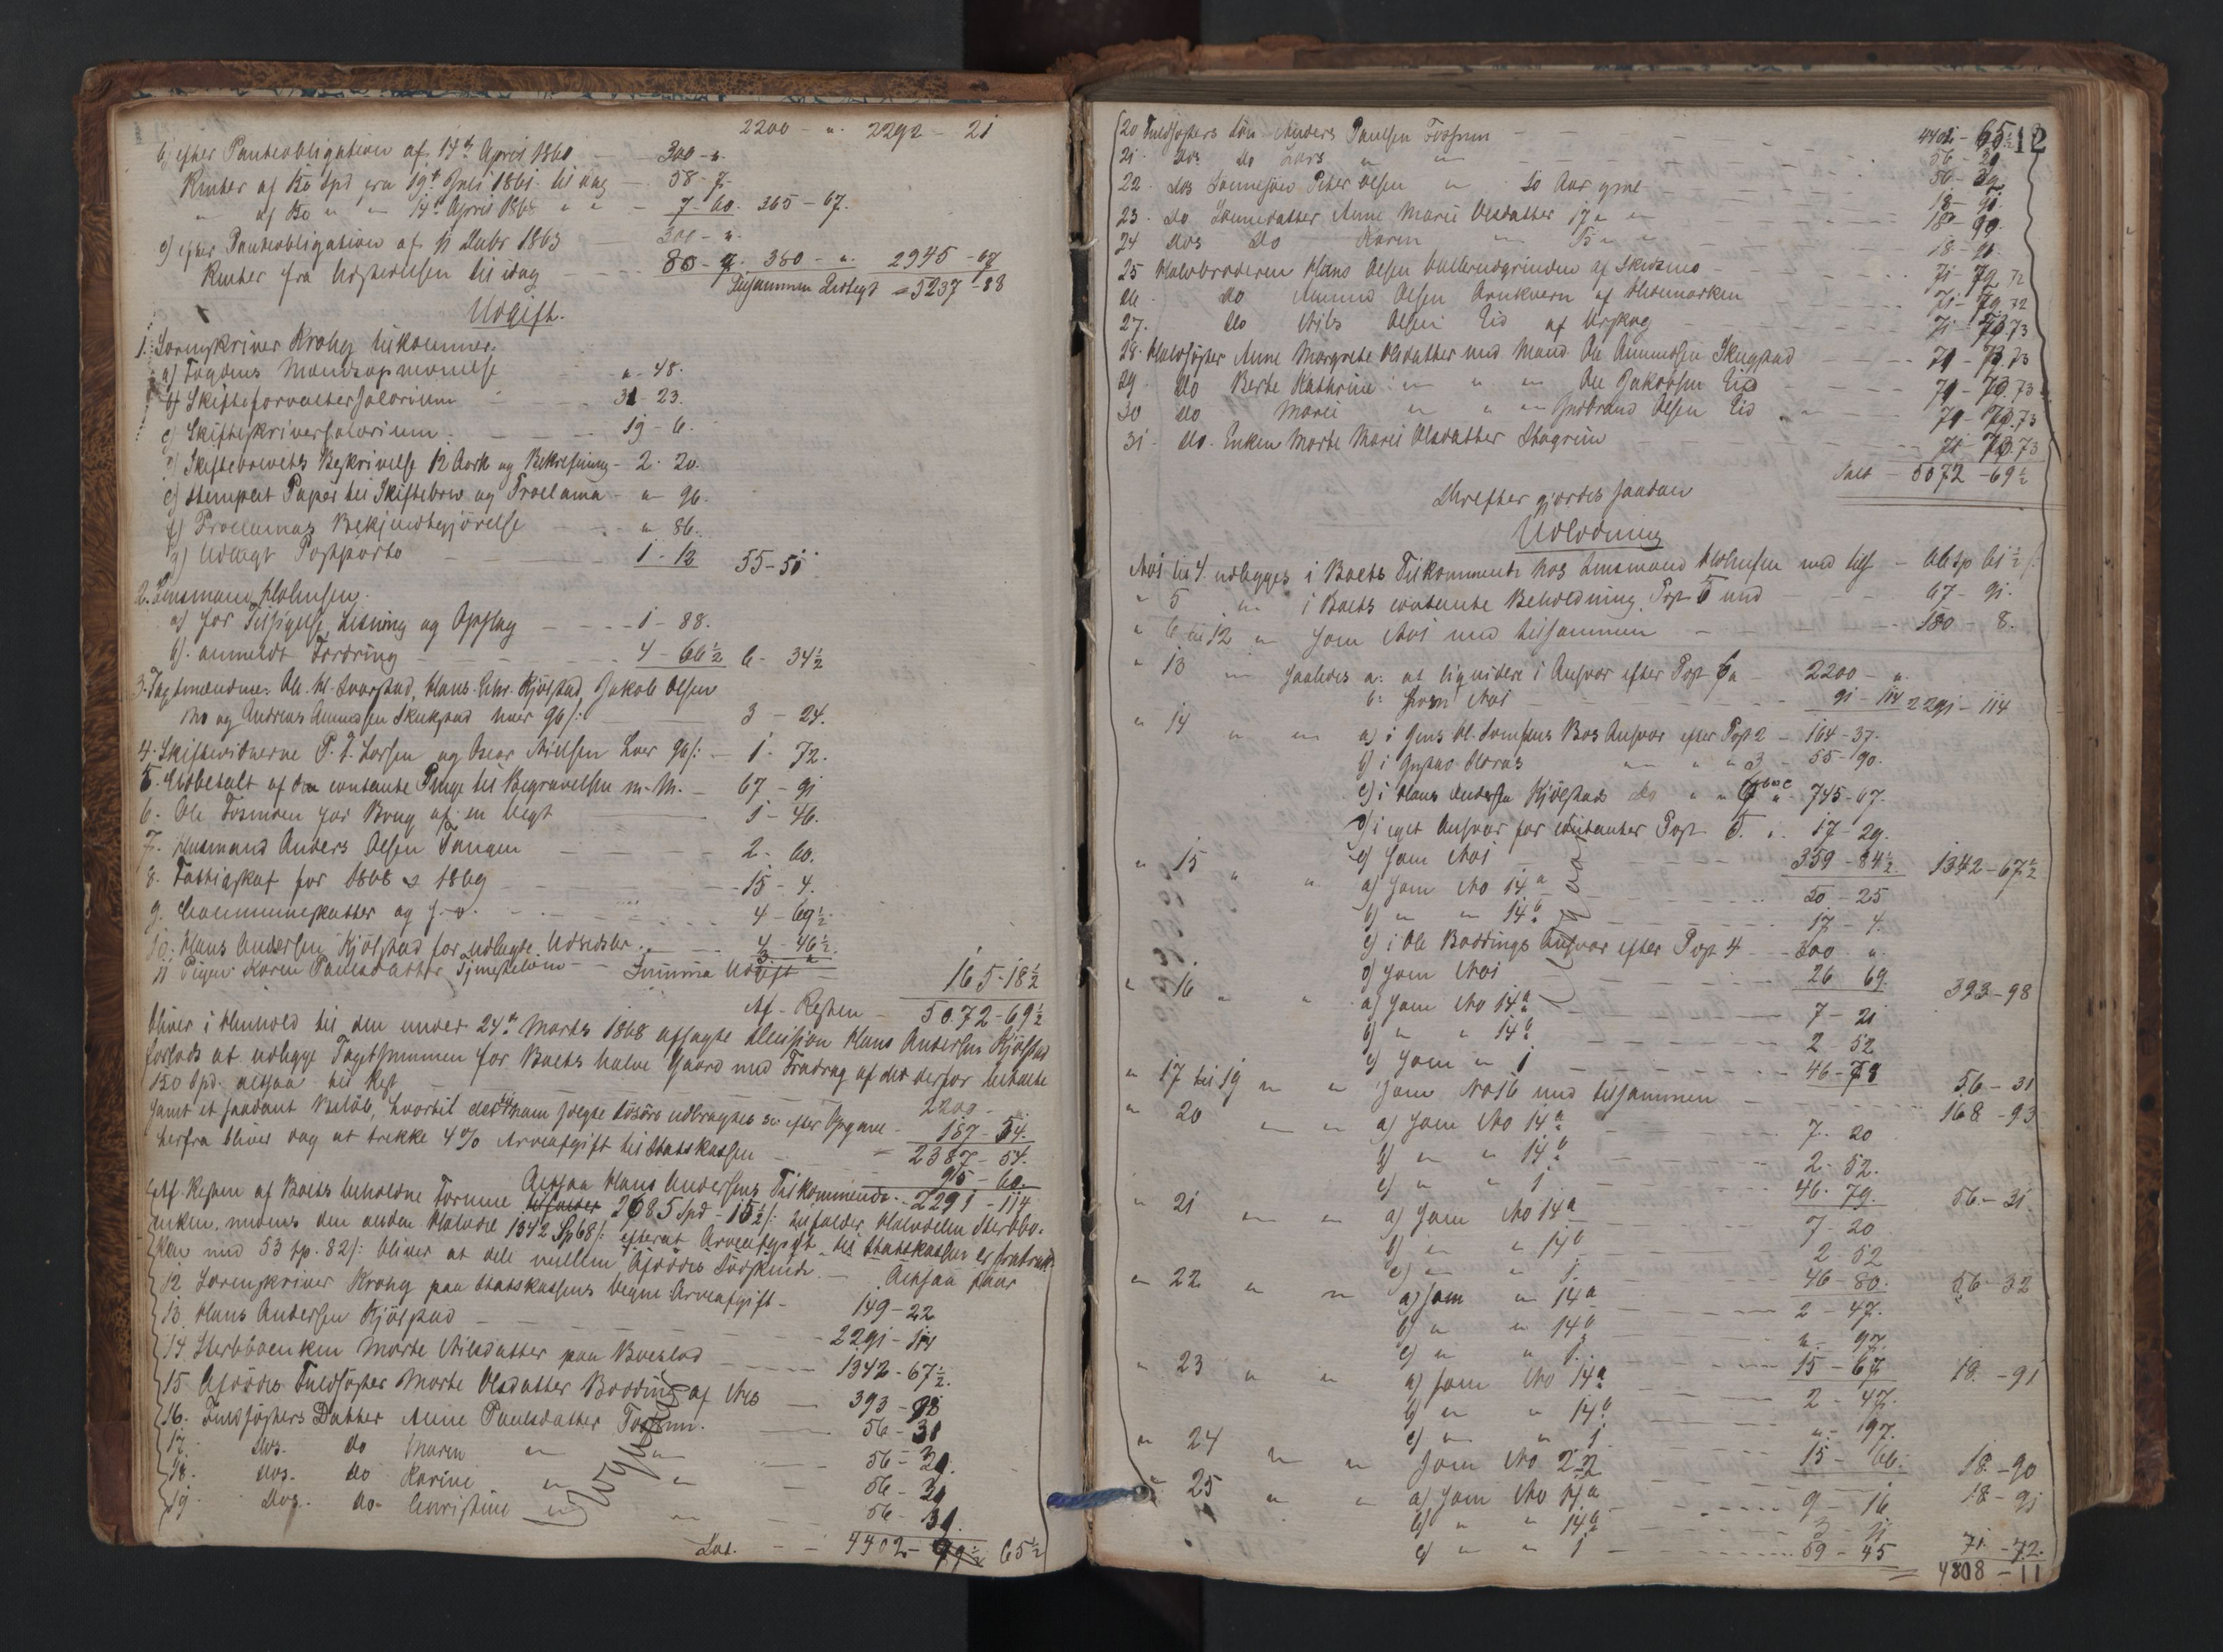 2200 - " 2292 - 21
b) efter Panteobligation af 14de April 1860 - 300 - "
Renter af 150 Spd fra 19de Juli 1861 til dag - 58 - 7.
" af 150 " " 14de April 1868 " " - 7 - 60. 365 - 67.
c) efter Panteobligation af 1865 - 300 - "
Renter fra Udstedelsen til idag - 80 - ". 380 - ". 2945 - 67
Tilsammen Indtægt = 5237 - 88
Udgift.
1. Sorenskriver Krohg tilkommer:
a) Fogdens " - 48.
b) Skifteforvaltersalarium - 31 - 23.
c) Skifteskriversalarium - 19 - 6.
d) Skiftebrevets Beskrivelse 12 Ark og Bekræftning - 2 - 20.
e) stemplet Papir til Skiftebrev og Proclama - " 96.
f) Proclamas Bekjendtgjørelse - " 86.
g) Udlagt Postporto - 1 - 12 55 - 51
2. Lensmand Holmsen:
a) for Tilsigelse, Læsning og Opslag - 1 - 88.
b) anmeldt Fordring - 4 - 66½ 6 - 34½
3. Hans Chr. Kjølstad, Jakob Olsen
Mo og Andreas Amundsen hver 96/: 3 - 24.
4. Skiftevidnerne P. T. Larsen og Oscar Nielsen hver 96/: - 1 - 72.
5. Udbetalt af de contante Penge til Begravelsen m. M. - 67 - 91
6. Ole Fosmoen for Brug af en Vegt 1 - 46.
7. Husmand Anders Olsen Tangen 2 - 60.
8. Fattigskat for 1868 & 1869 - 15 - 4.
9. Communeskatter og f. v. 4 - 69½.
10. Hans Andersen Kjølstad for udlagte Udgifter 4 - 46½.
11 Pigen Karen Paulsdatter Tjenesteløn 3 "
Summa Udgift 165 - 18½
At Resten - 5072 - 69½
bliver i Henhold til den under 24de Marts 1868 afsagte Decision Hans Andersen Kjølstad
forlods at udlægge Taxtsummen for Boets halve Gaard med Fradrag af
150 Spd. altsaa til Rest 2200 -
samt et saadant Beløb, hvortil Løsøre udbragtes efter Opgave - 187 - 54.
herfra bliver dog at trekke 4% Arveafgift til Statskassen = 2387 - 54.
95 - 60.
Altsaa Hans Andersens Tilkommende. 2291 - 114
Af Resten af Boets beholdne Formue 2685 Spd - 15½/: tilfalder Halvdelen Sterbbo-
enken, medens den anden Halvdel 1342 Sp 68/: efterat Arveafgift til Statskassen er fratruk-
ken med 53 Sp. 82/: bliver at dele mellem Afdødes Sødskende. - Altsaa faar
12 Sorenskriver Krohg paa Statskassens Vegne Arveafgift - 149 - 22
13 Hans Andersen Kjølstad 2291 - 114
14 Sterbboenken Marte Nilsdatter paa Boeslod 1342 - 67½.
15 Afdødes Fuldsøster Marte Olsdatter Bodding af Næs 393 - 98
16. Fuldsøsters Datter Anne Paulsdatter Fossum. 56 - 31
17. dos. do Maren " " 56 - 31.
18. dos. do Karine " " 56 - 31
19. dos. do Christine " " 56 - 31.
Lat. - - 4402 - 65½
12
4402 - 65½
20 Fuldsøsters Søn Anders Paulsen Fossum 56 - 31
21 dos do Lars " " 56 - 32
22 dos Sønnesøn Peter Olsen " 20 Aar gml 18 - 91.
23. do Sønnedatter Anne Marie Olsdatter 17 " " 18 - 90.
24 dos do Karen " 15 " " 18 - 91
25 Halvbroderen Hans Olsen af Skedsmo - 71 - 72
26. do Amund Olsen af Hedemarken 71 - 72
27. do Nils Olsen Eid af Urskog 71 - 73
28. Halvsøster Anne Margrete Olsdatter med Mand Ole Amundsen 71 - 73
29 do Berte Kathrine " " " Ole Jakobsen Eid 71 - 73
30 do Marie " " " Gudbrand Olsen Eid 71 - 73
31 do. Enken Marte Marie Olsdatter 71 - 73
Salt - 5072 - 69½
Derefter gjordes saadan
Udlodning
No 1 til 4. udlægges i Boets Tilkommende hos Lensmand Holmsen med tils. - 61½
" 5 " i Boets contante Beholdning Post 5 med - 67 - 91.
" 6 til 12 " som No 1 med tilsammen 180 - 8.
" 13 " saaledes a: at liquidere i Ansvar efter Post 6a - 2200 - "
b: som No 1 91 - 114 2291 - 114
" 14 " " a) i Jens H. Bos Ansvar efter Post 2 - 164 - 37.
b) i Gustav " " " 3 - 55 - 90.
c) i Hans Andersen Kjølstads do " " 6 b & c " 745 - 67.
d) i eget Ansvar for Contanter Post 5. 17 - 29.
e) som No 1 359 - 84½. 1342 - 67½
" 15 " " a) som No 14a 20 - 25
b) " " 14b 17 - 4.
c) i Ole Boddings Ansvar efter Post 4 - 300 "
d) som No 1 26 69. 393 - 98
" 16 " " a) som No 14a 7 - 21
b) " " 14b 2 - 52
c) som " 1 46 - 78 56 - 31
" 17 til 19 " " som No 16 med tilsammen 168 - 93
" 20 " " a) som No 14a 7 - 20
b) " " 14b 2 - 52.
c) " " 1 46 - 79. 56 - 31
" 21 " " a) som No 14a 7 - 20
b) " " 14b 2 - 52
c) " " 1 46 - 80. 56 - 32
" 22 " " a) som " 14a 2 - 47.
b) " " 14b " - 97.
c) " " 1. 15 - 67 18 - 91
" 23 " " a) som No 14a 2 - 47.
b) " " 14b " - 97.
c) " " 1 15 - 66. 18 - 90
" 24 " " som No 22 18 - 91
" 25 " " a) som No 14a 9 - 16
b) " " 14b 3 - 11
c) " " 1 59 - 45 71 - 72.
4808 - 11